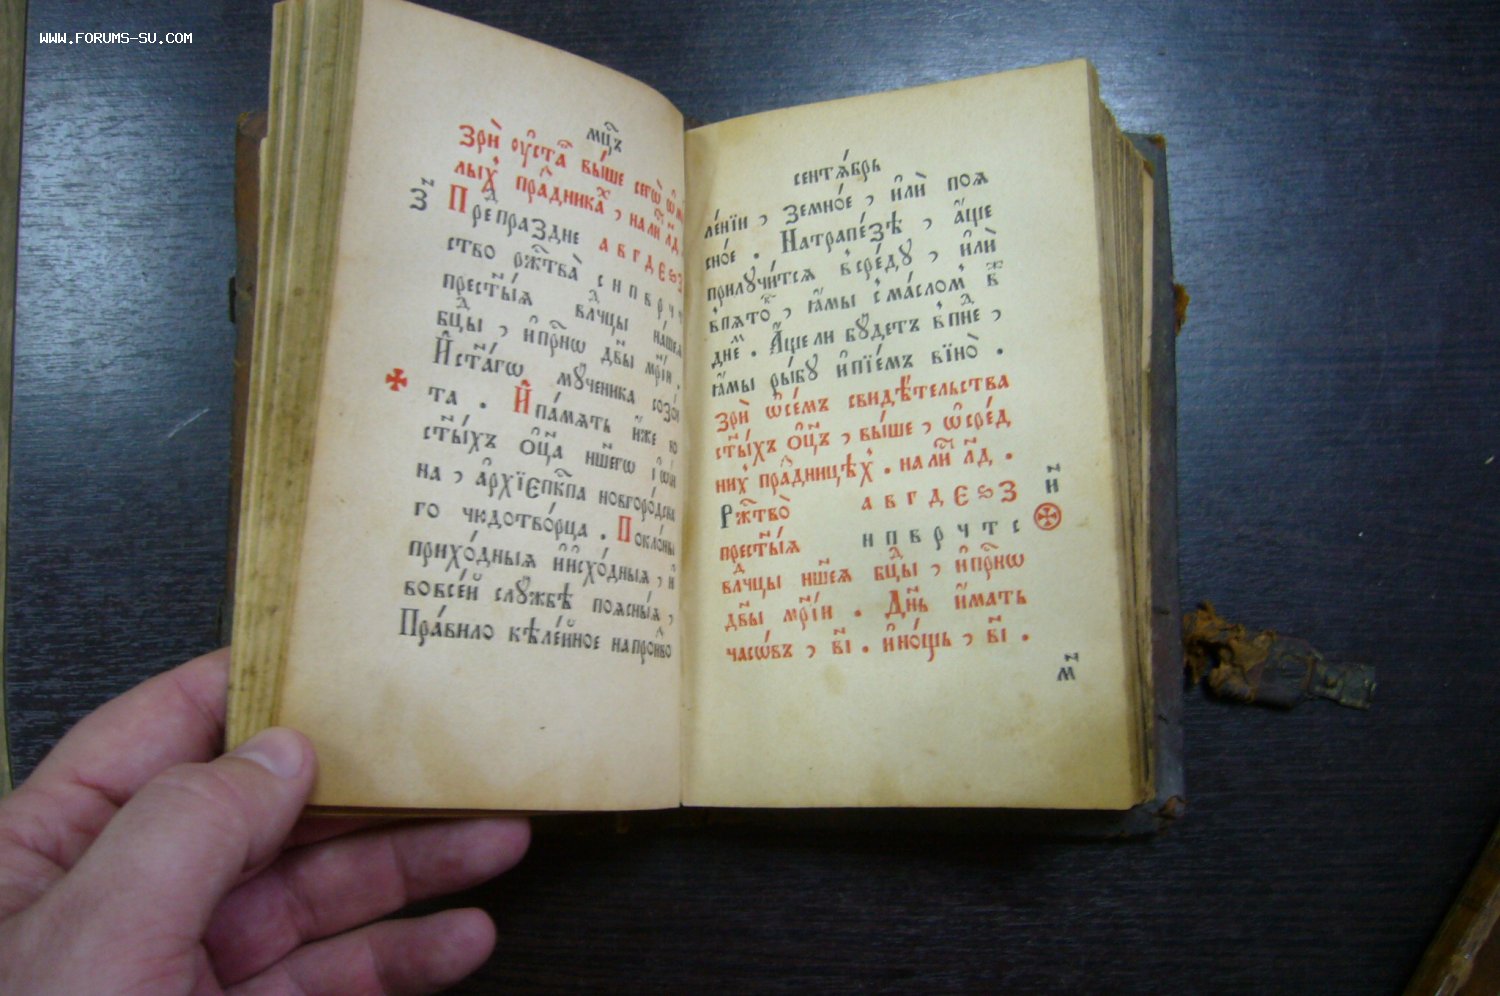 WWW.FORUMS-SU.COM
мц҇ъ
Зрѝ ᲂу҆ста̑ вы́ше сегѡ̀ ѡ҆ ма
лыхъ пра́здника̑х , на ли́ л҃д .
З Предпразднe а в г д є ѕ з
ство рж҇тва̀ с н п в р ч
прест҃ы́ѧ влⷣчцы на́шеѧ
бцⷣы , и҆ прⷭ҇нѡ дв҃ы мр҃і́и .
И҆ ст҃а́гѡ мꙋченика созон
та . И҆ па́мѧть и҆́же во
ст҃ы́хъ ѻ҆ц҃а нш҃егѡ і҆ѡа́н
на , а҆рхїєпкⷭ҇па новгоро́дска
го чюдотво́рца . Покло́ны
прихо́дныѧ и҆ и҆схо́дныѧ , и҆
во все́й слꙋ́жбѣ поѧсны́ѧ ,
Пра́вило кѣле́йное на про́иво
сентѧ́брь
ле́нїи , земно́е , и҆лѝ поѧ
сно́е . На трапе́зѣ , а҆́ще
прилꙋчи́тсѧ в сре́дꙋ , и҆лѝ
в пѧто́к , ꙗ҆мы́ с ма́сломъ в҃
дне́м . А҆́ще ли бꙋ́детъ в пнⷣе ,
ꙗ҆мы́ ры́бꙋ и҆ пїе́мъ вїно̀ .
Зрѝ ѡ҆ се́мъ свидѣ́тельства
ст҃ы́хъ ѻ҆ц҃ъ , вы́ше , ѡ҆ сре́д
нихъ пра́здницѣхъ . на ли́ л҃д .
Рж҇тво̀ а в г д є ѕ з и҃
прест҃ы́ѧ н п в р ч т с
влⷣчцы нш҃еѧ бцⷣы , и҆ прⷭ҇нѡ
дв҃ы мр҃і́и . Дн҃ь и҆́мать
часѡ́въ , в҃і . и҆ но́щь , в҃і .
м҃